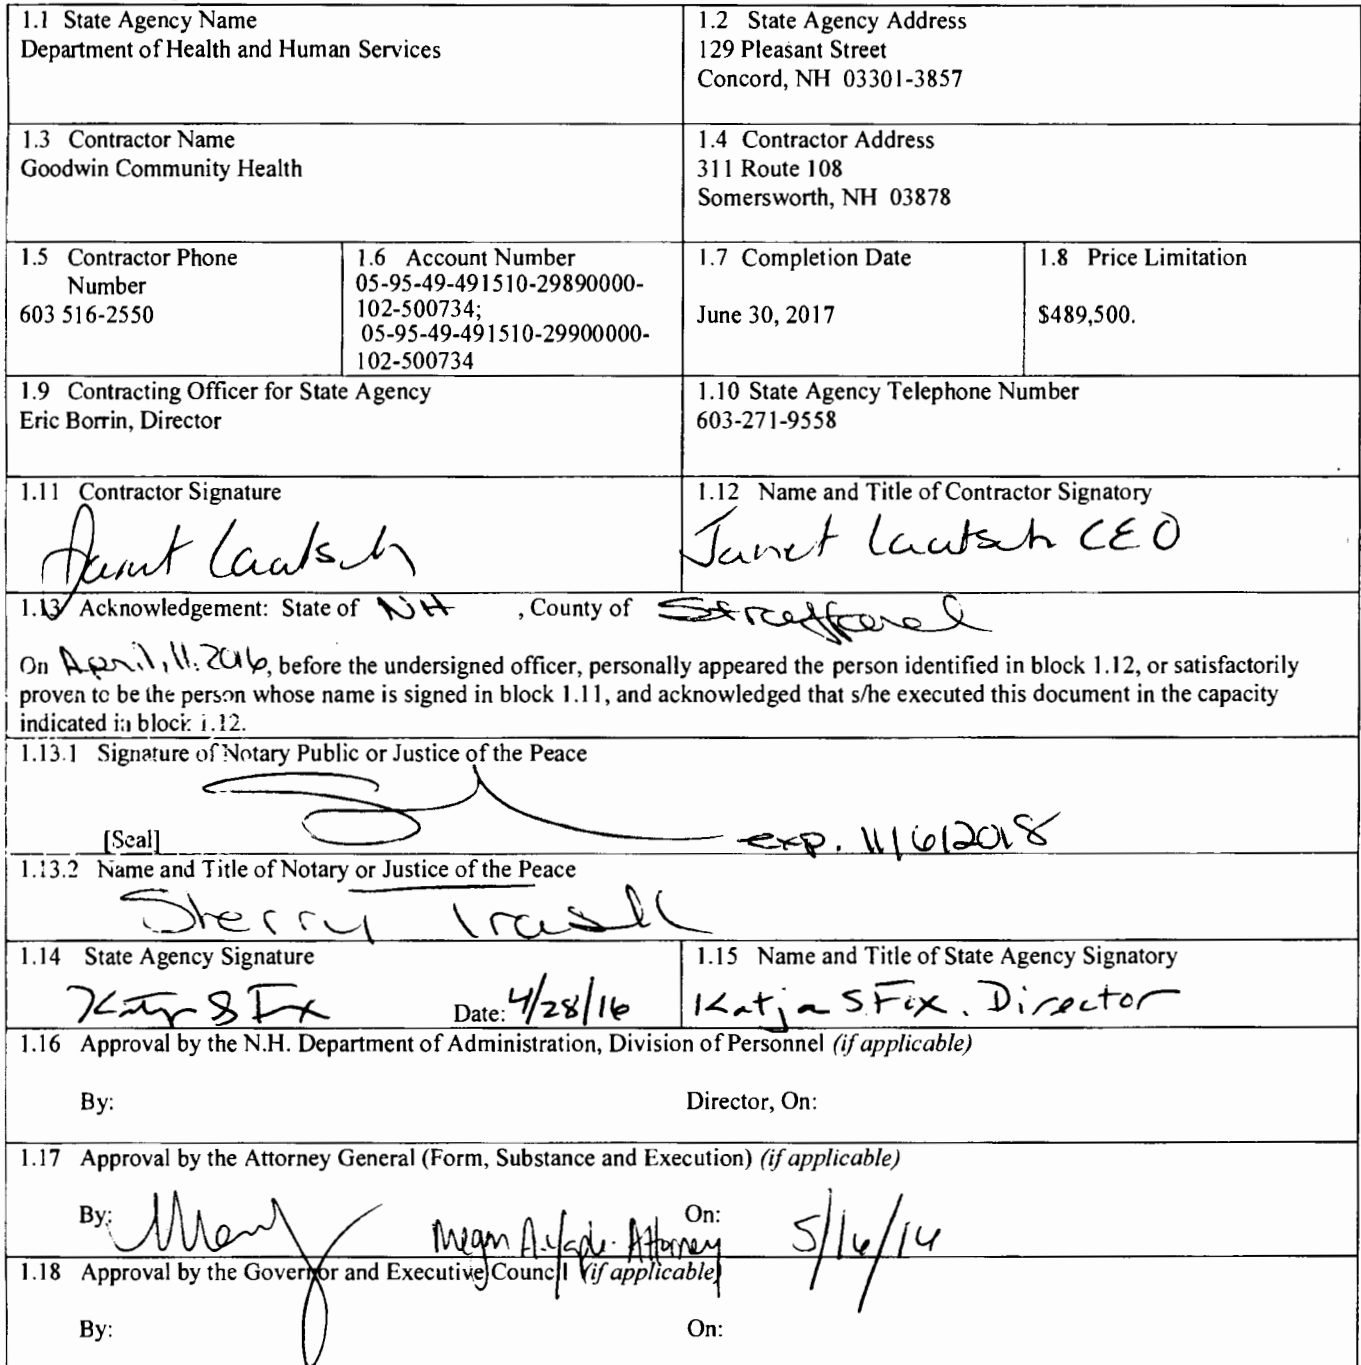 1.1 State Agency Name
Department of Health and Human Services
1.2 State Agency Address
129 Pleasant Street
Concord, NH 03301-3857
1.3 Contractor Name
Goodwin Community Health
1.4 Contractor Address
311 Route 108
Somersworth, NH 03878
1.5 Contractor Phone
Number
603 516-2550
1.6 Account Number
05-95-49-491510-29890000-
102-500734;
05-95-49-491510-29900000-
102-500734
1.7 Completion Date
June 30, 2017
1.8 Price Limitation
$489,500.
1.9 Contracting Officer for State Agency
Eric Borrin, Director
1.10 State Agency Telephone Number
603-271-9558
1.11 Contractor Signature
Janet Laatsch
1.12 Name and Title of Contractor Signatory
Janet Laatsch CEO
1.13 Acknowledgement: State of NH , County of Strafford
On April, 11, 2016, before the undersigned officer, personally appeared the person identified in block 1.12, or satisfactorily
proven to be the person whose name is signed in block 1.11, and acknowledged that s/he executed this document in the capacity
indicated in block 1.12.
1.13.1 Signature of Notary Public or Justice of the Peace
[Seal]
exp. 11/6/2018
1.13.2 Name and Title of Notary or Justice of the Peace
Sherry
1.14 State Agency Signature
Date: 4/28/16
1.15 Name and Title of State Agency Signatory
Katja S. Fox, Director
1.16 Approval by the N.H. Department of Administration, Division of Personnel (if applicable)
By:
Director, On:
1.17 Approval by the Attorney General (Form, Substance and Execution) (if applicable)
By:
Megan A. Attorney
On:
1.18 Approval by the Governor and Executive Council (if applicable)
By:
On: